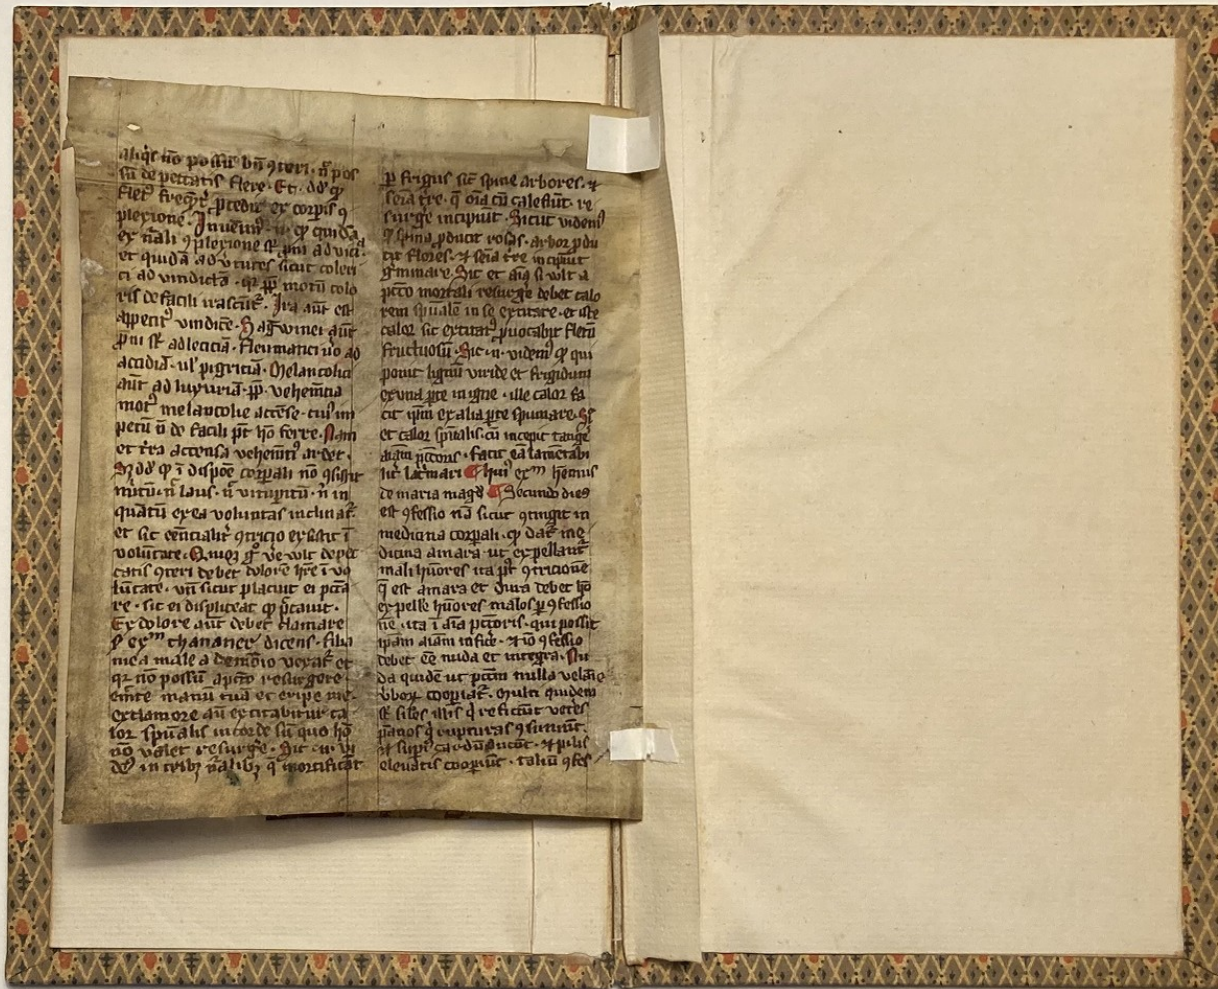 aliq̄s nō possūt bn̄ ꝯteri · n̄ pos
sūt de peccatis flere · Et · dd̄ ꝙ
flet᷒ freq̄nt᷒ ꝓcedit ex corpis ꝯ
plexione · Inuenim᷒ · n · ꝙ quidā
ex nāli ꝯplexione st̄ ꝓni ad vicia
et quidā ad v̓tutes sicut coleri
ci ad vindictā · qr ꝓp̄ motū cole
ris de facili irascūt᷒ · Ira aūt est
appetit᷒ vindicte · Sagwinei aūt
ꝓni st̄ ad leticiā · fleumatici u̓o ad
accidiā · ul̓ pigriciā · Melancolici
aūt ad luxuriā · ꝓp̄ · vehemētia
mot᷒ melancolie accēse · cui᷒ im
petū nō de facili pt̄ hō ferre · Nam
et tr̄ra accensa vehemēti᷒ ardet ·
Sꝫ dd̄ ꝙ ī dispōe corꝑali nō ꝯsistit
m̓itū · n̄ laus · n̄ vitupiū · n̄ in
quātū ex ea voluntas inclinat᷒ ·
et sic eēncialit᷒ ꝯtricio existit ī
volūtate · Quicq̄ gͦ ve wlt de pec
catis ꝯteri debet dolorē hr̄e ī vo
lūtate · vn̄ sicut placuit ei pccā
re · sic ei displiceat ꝙ pͨcauit ·
Ex dolore aūt debet clamare
ꝑ ex̄ᵐ chananee dicens · filia
mea male a demōio vexat᷒ et
qr nō possū a pctō resurgere
emitte manū tuā et eripe me ·
ex clamore aū excitabitur ca
lor spūalis in corde suͦ quo hō
nō valet resurge · Sic · n · vi
dem᷒ in reb᷒ nālib᷒ q̄ mortificāt᷒
ꝑ frigus sic̄ spine arbores · ⁊
sēia tr̄e · q̄ oīa cū calefiūt · re
surge incipiūt · Sicut videm᷒
ꝙ spina ꝓducit rosas · arbor ꝓdu
cit flores · ⁊ sēia tr̄e incipiūt
g̓minare · Sic et aīa si wlt a
pctō mortali resurge debet calo
rem spūalē in se excitare · et iste
calor sic excitat᷒ ꝓuocabit fletū
fructuosū · Sic · n · videm᷒ ꝙ qui
ponit lignū viride et frigidum
ex una ꝑte in igne · ille calor fa
cit ip̄m ex alia ꝑte spumare · Sꝫ
et calor spūalis cū incepit tange
aīam pctōris · facit eā lamētabi
lit᷒ lac̓mari ¶ hui᷒ exᵐ hēmus
de maria magd̄ ¶ Secundo dies
est ꝯfessio nā sicut ꝯtingit in
medicina corꝑali · ꝙ dat᷒ me
dicina amara ut expellant᷒
mali hūores ita pͭ ꝯtricionē
q̄ est amara et dura debet hō
expelle hūores malos ꝑ ꝯfessio
nē · ita ī aīa pctōris · qui possūt
ipam aīam inficē · ⁊ iō ꝯfessio
debet eē nuda et integra · Nu
da quidē ut pctm̄ nulla velam̄e
v̓boꝝ cooꝑiat᷒ · Multi quidem
st̄ siles illis q̓ reficiūt vetes
pānos q̓ rupturas ꝯsuunt ·
⁊ suꝑ cardūcant · ⁊ pilis
eleuatis cooꝑiūt · taliū ꝯfes